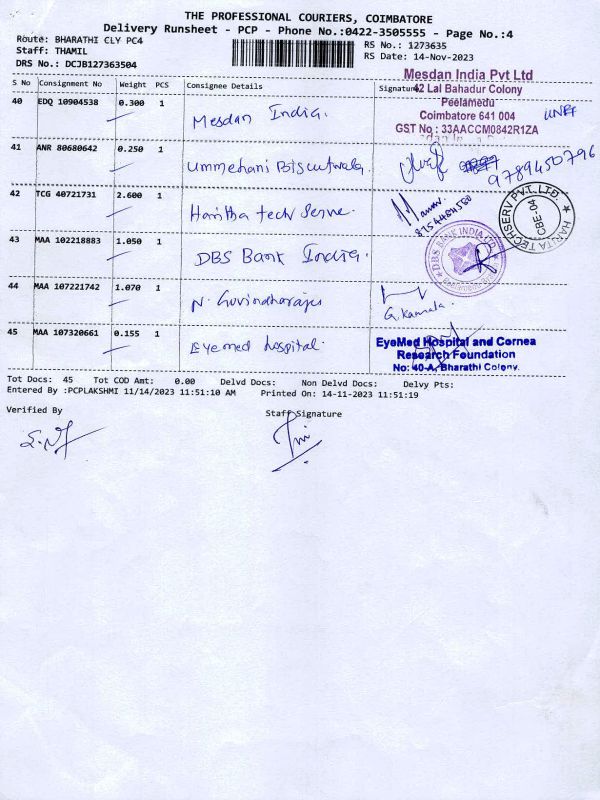 THE PROFESSIONAL COURIERS, COIMBATORE
Delivery Runsheet - PCP - Phone No.:0422-3505555 - Page No.:4
Route: BHARATHI CLY PC4
RS No.: 1273635
Staff: THAMIL
RS Date: 14-Nov-2023
DRS No.: DCJB127363504
Mesdan India Pvt Ltd
S No Consignment No Weight PCS Consignee Details Signature
42 Lal Bahadur Colony
Peelamedu
Coimbatore 641 004
GST No : 33AACCM0842R1ZA
40 EDQ 10904538 0.300 1 Mesdan India.
41 ANR 80680642 0.250 1 Ummehani Biscutwala.
9789450796
42 TCG 40721731 2.600 1 Haritha tech Serve.
8754484580
HARITA TECHSERV PVT. LTD.
CBE-04
43 MAA 102218883 1.050 1 DBS Bank India.
DBS BANK INDIA
44 MAA 107221742 1.070 1 N. Govindharajes
G. Kamala.
45 MAA 107320661 0.155 1 Eyemed hospital.
EyeMed Hospital and Cornea
Research Foundation
No: 40-A, Bharathi Colony.
Tot Docs: 45 Tot COD Amt: 0.00 Delvd Docs: Non Delvd Docs: Delvy Pts:
Entered By :PCPLAKSHMI 11/14/2023 11:51:10 AM Printed On: 14-11-2023 11:51:19
Verified By
Staff Signature